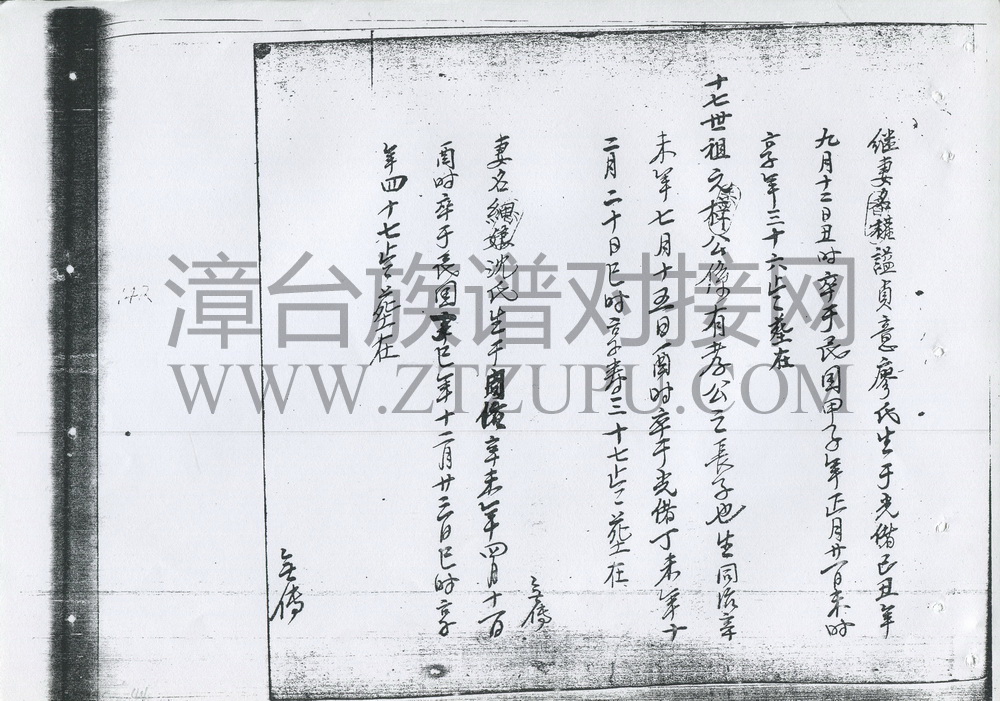 继妻名權謚貞意廖氏生于光緒己丑年
九月十二日丑时卒于民国甲子年正月廿一日未时
享年三十六止之葬在
十七世祖元梓公係有孝公之長子也生同治辛
未年七月十五日酉时卒于光绪丁未年十
二月二十日巳时享寿三十七止葬在
妻名 娘沈氏生于同治辛未年四月十一日
酉时卒于民国 巳年十二月廿三日巳时享
年四十七止葬在
漳台族谱对接网
WWW.ZTZUPU.COM